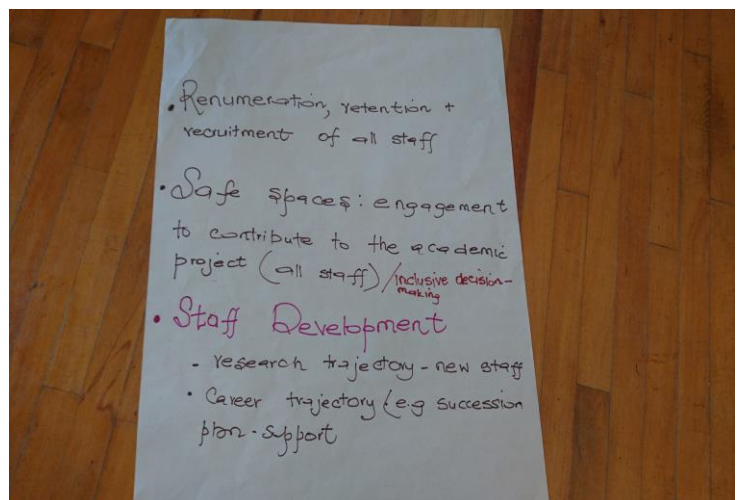 • Renumeration, retention +
recruitment of all staff
• Safe spaces: engagement
to contribute to the academic
project (all staff) /inclusive decision-
making
• Staff Development
- research trajectory - new staff
• Career trajectory (e.g succession
plan - support